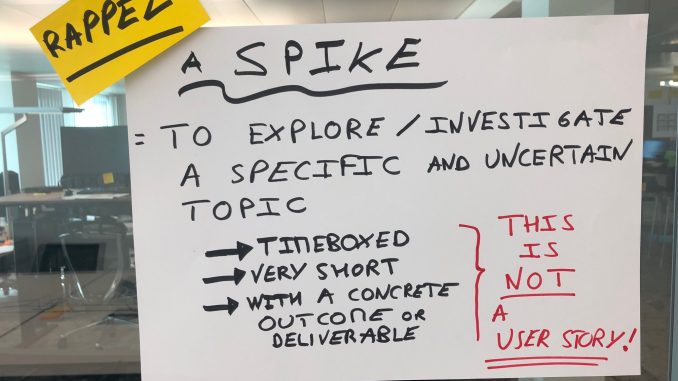 RAPPEL
A SPIKE
= TO EXPLORE / INVESTIGATE
A SPECIFIC AND UNCERTAIN
TOPIC
→ TIMEBOXED
→ VERY SHORT
→ WITH A CONCRETE
OUTCOME OR
DELIVERABLE
THIS
IS
NOT
A
USER STORY!